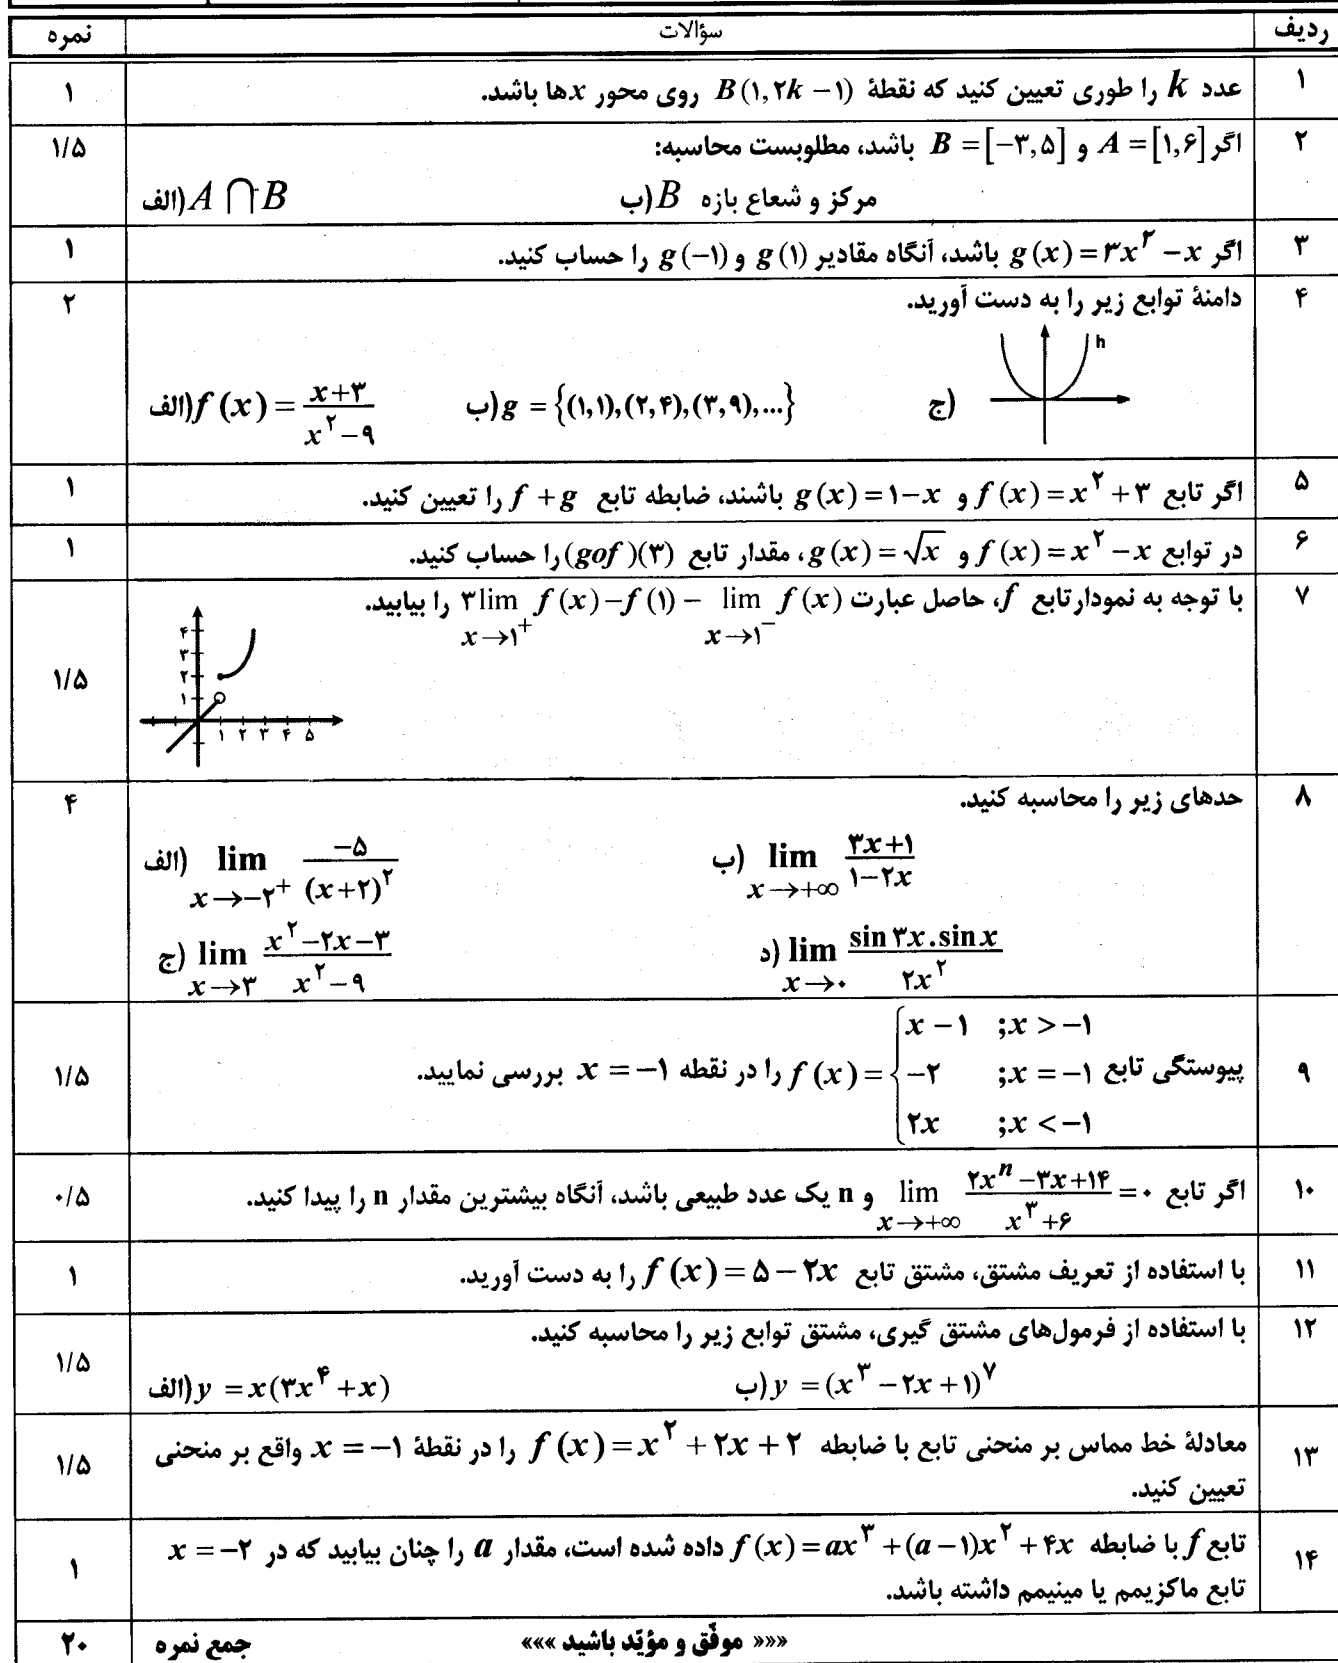 ردیف سؤالات نمره
۱ عدد k را طوری تعیین کنید که نقطهٔ B(۱,۲k−۱) روی محور xها باشد. ۱
۲ اگر A=[۱,۶] و B=[−۳,۵] باشد، مطلوبست محاسبه: ۱/۵
الف) A⋂B ب) مرکز و شعاع بازه B
۳ اگر g(x)=۳x^۲−x باشد، آنگاه مقادیر g(۱) و g(−۱) را حساب کنید. ۱
۴ دامنهٔ توابع زیر را به دست آورید. ۲
h
الف) f(x)=(x+۳)/(x^۲−۹) ب) g={(۱,۱),(۲,۴),(۳,۹),...} ج)
۵ اگر تابع f(x)=x^۲+۳ و g(x)=۱−x باشند، ضابطه تابع f+g را تعیین کنید. ۱
۶ در توابع f(x)=x^۲−x و g(x)=√x، مقدار تابع (gof)(۳) را حساب کنید. ۱
۷ با توجه به نمودارتابع f، حاصل عبارت ۳lim x→۱⁺ f(x)−f(۱)− lim x→۱⁻ f(x) را بیابید. ۱/۵
۴
۳
۲
۱
۱ ۲ ۳ ۴ ۵
۸ حدهای زیر را محاسبه کنید. ۴
الف) lim x→−۲⁺ −۵/(x+۲)^۲ ب) lim x→+∞ (۳x+۱)/(۱−۲x)
ج) lim x→۳ (x^۲−۲x−۳)/(x^۲−۹) د) lim x→۰ (sin۳x.sinx)/۲x^۲
x−۱ ;x>−۱
۹ پیوستگی تابع f(x)={ −۲ ;x=−۱ را در نقطه x=−۱ بررسی نمایید. ۱/۵
۲x ;x<−۱
۱۰ اگر تابع lim x→+∞ (۲x^n−۳x+۱۴)/(x^۳+۶)=۰ و n یک عدد طبیعی باشد، آنگاه بیشترین مقدار n را پیدا کنید. ۰/۵
۱۱ با استفاده از تعریف مشتق، مشتق تابع f(x)=۵−۲x را به دست آورید. ۱
۱۲ با استفاده از فرمول‌های مشتق گیری، مشتق توابع زیر را محاسبه کنید. ۱/۵
الف) y=x(۳x^۴+x) ب) y=(x^۳−۲x+۱)^۷
۱۳ معادلهٔ خط مماس بر منحنی تابع با ضابطه f(x)=x^۲+۲x+۲ را در نقطهٔ x=−۱ واقع بر منحنی ۱/۵
تعیین کنید.
۱۴ تابع f با ضابطه f(x)=ax^۳+(a−۱)x^۲+۴x داده شده است، مقدار a را چنان بیابید که در x=−۲ ۱
تابع ماکزیمم یا مینیمم داشته باشد.
««« موفّق و مؤیّد باشید »»» جمع نمره ۲۰